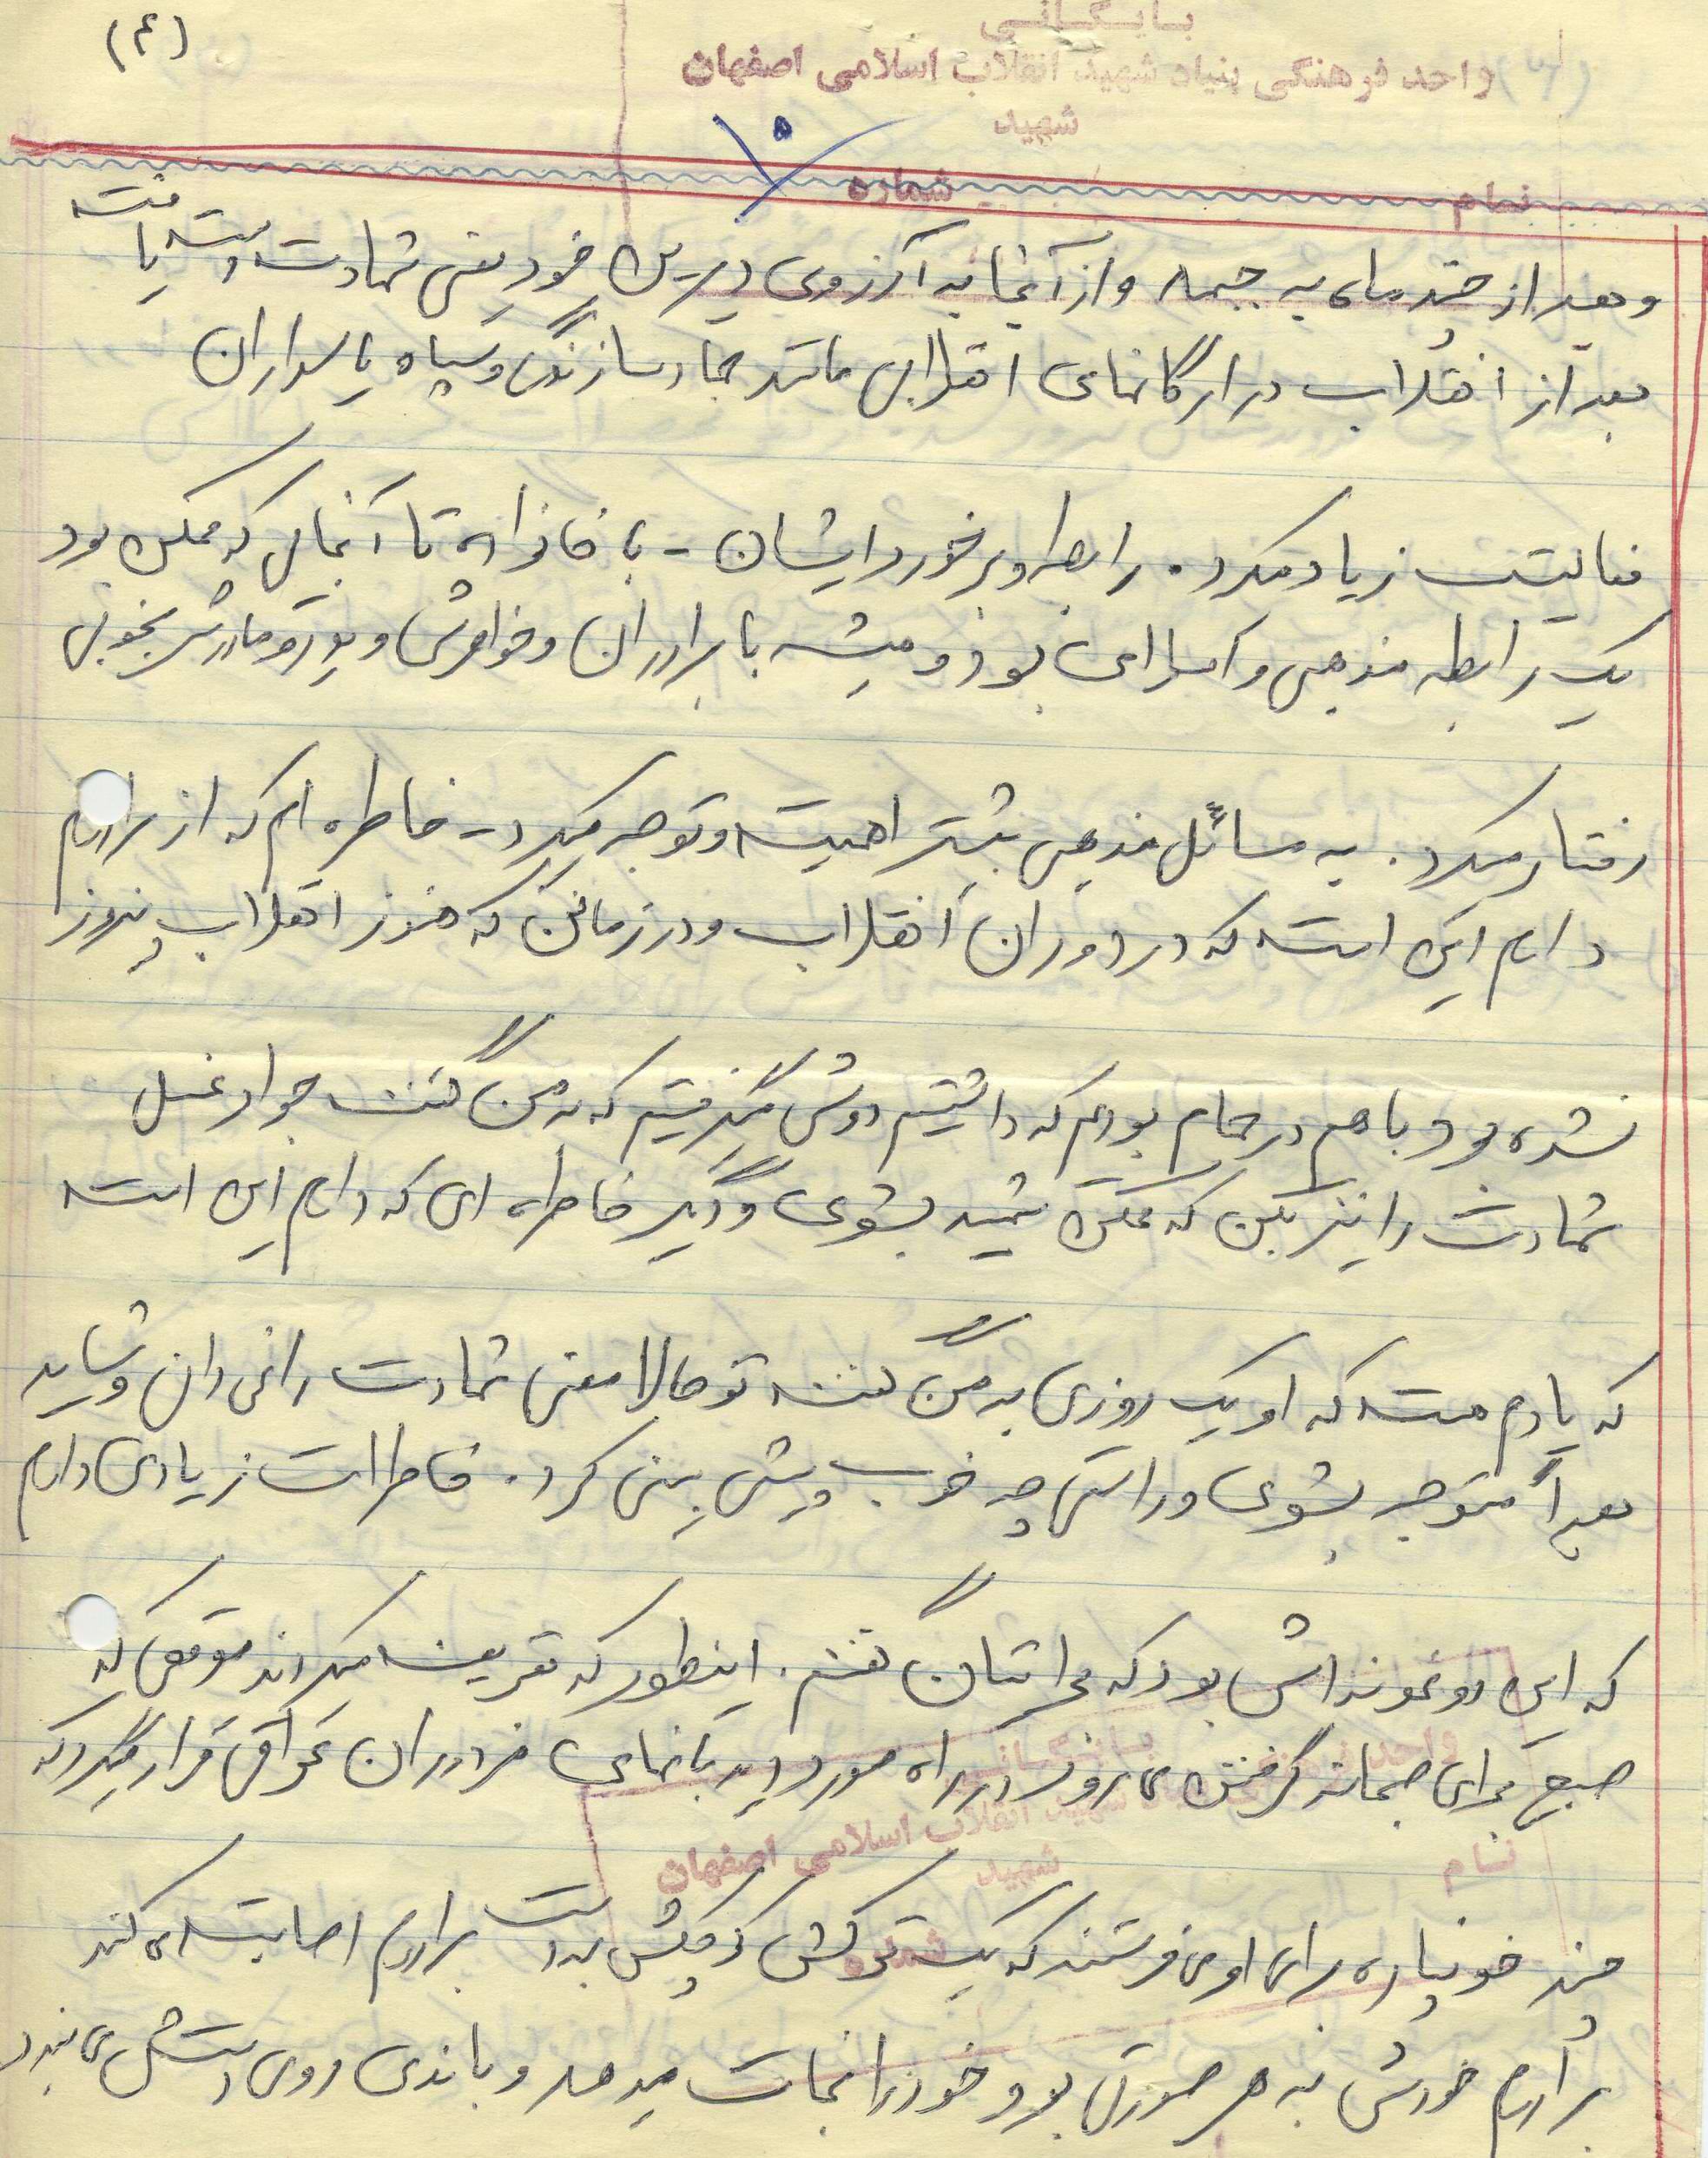 (۴)
بایگانی
واحد فرهنگی بنیاد شهید انقلاب اسلامی اصفهان
شهید
نام شماره
و بعد از چند ماه به جبهه و از آنجا به آرزوی دیرین خود یعنی شهادت دست یافت
بعد از انقلاب در ارگانهای انقلابی مانند جهاد سازندگی و سپاه پاسداران
فعالیت زیاد میکرد. رابطه و برخورد ایشان - با خانواده تا آنجایی که ممکن بود
یک رابطه مذهبی و اسلامی بود و همیشه با برادران و خواهرش و پدر و مادرش بخوبی
رفتار میکرد. به مسائل مذهبی بیشتر اهمیت و توجه میکرد - خاطره ایم که از برادرم
دارم این است که در دوران انقلاب و در زمانی که هنوز انقلاب پیروز
نشده بود با هم در حمام بودیم که داشتیم دوش میگرفتیم که به من گفت جواد غسل
شهادت را نیز بکن که ممکن شهید بشوی و دیگر خاطره ای که دارم این است
که یادم هست که او یک روزی به من گفت تو حالا معنی شهادت را نمی دانی و شاید
بعداً متوجه بشوی و راستی چه خوب پیش بینی کرد. خاطرات زیادی دارم
که این دو نمونه اش بود که برایتان گفتم. اینطور که تعریف میکردند موقعی که
صبح برای صبحانه گرفتن می رود در راه مورد دید بانهای مزدوران عراقی قرار میگیرد که
چند خمپاره برای او می فرستند که یک ترکش کوچکش به دست برادرم اصابت می کند
برادرم خودش به هر صورتی بود خود را نجات میدهد و باندی روی دستش می بندد
بایگانی
واحد فرهنگی بنیاد شهید انقلاب اسلامی اصفهان
شهید
نام
شماره